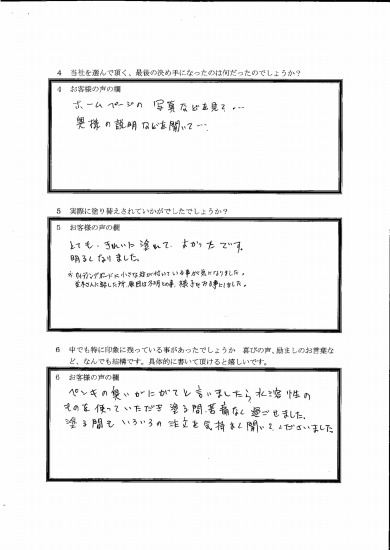 4 当社を選んで頂く、最後の決め手になったのは何だったのでしょうか?
4 お客様の声の欄
ホームページの写真などを見て・・・
奥様の説明などを聞いて・・・
5 実際に塗り替えされていかがでしたでしょうか?
5 お客様の声の欄
とても、きれいに塗れて、よかったです。
明るくなりました。
サイディングボードに小さな 付いている事が気になりました。
に話した所、原因は不明との事、様子を
6 中でも特に印象に残っている事があったでしょうか 喜びの声、励ましのお言葉な
ど、なんでも結構です。具体的に書いて頂けると嬉しいです。
6 お客様の声の欄
ペンキの臭いがにがてと言いましたら、水溶性の
ものを使っていただき塗る間、苦痛なく過ごせました。
塗る間もいろいろの注文を気持よく聞いてくださいました